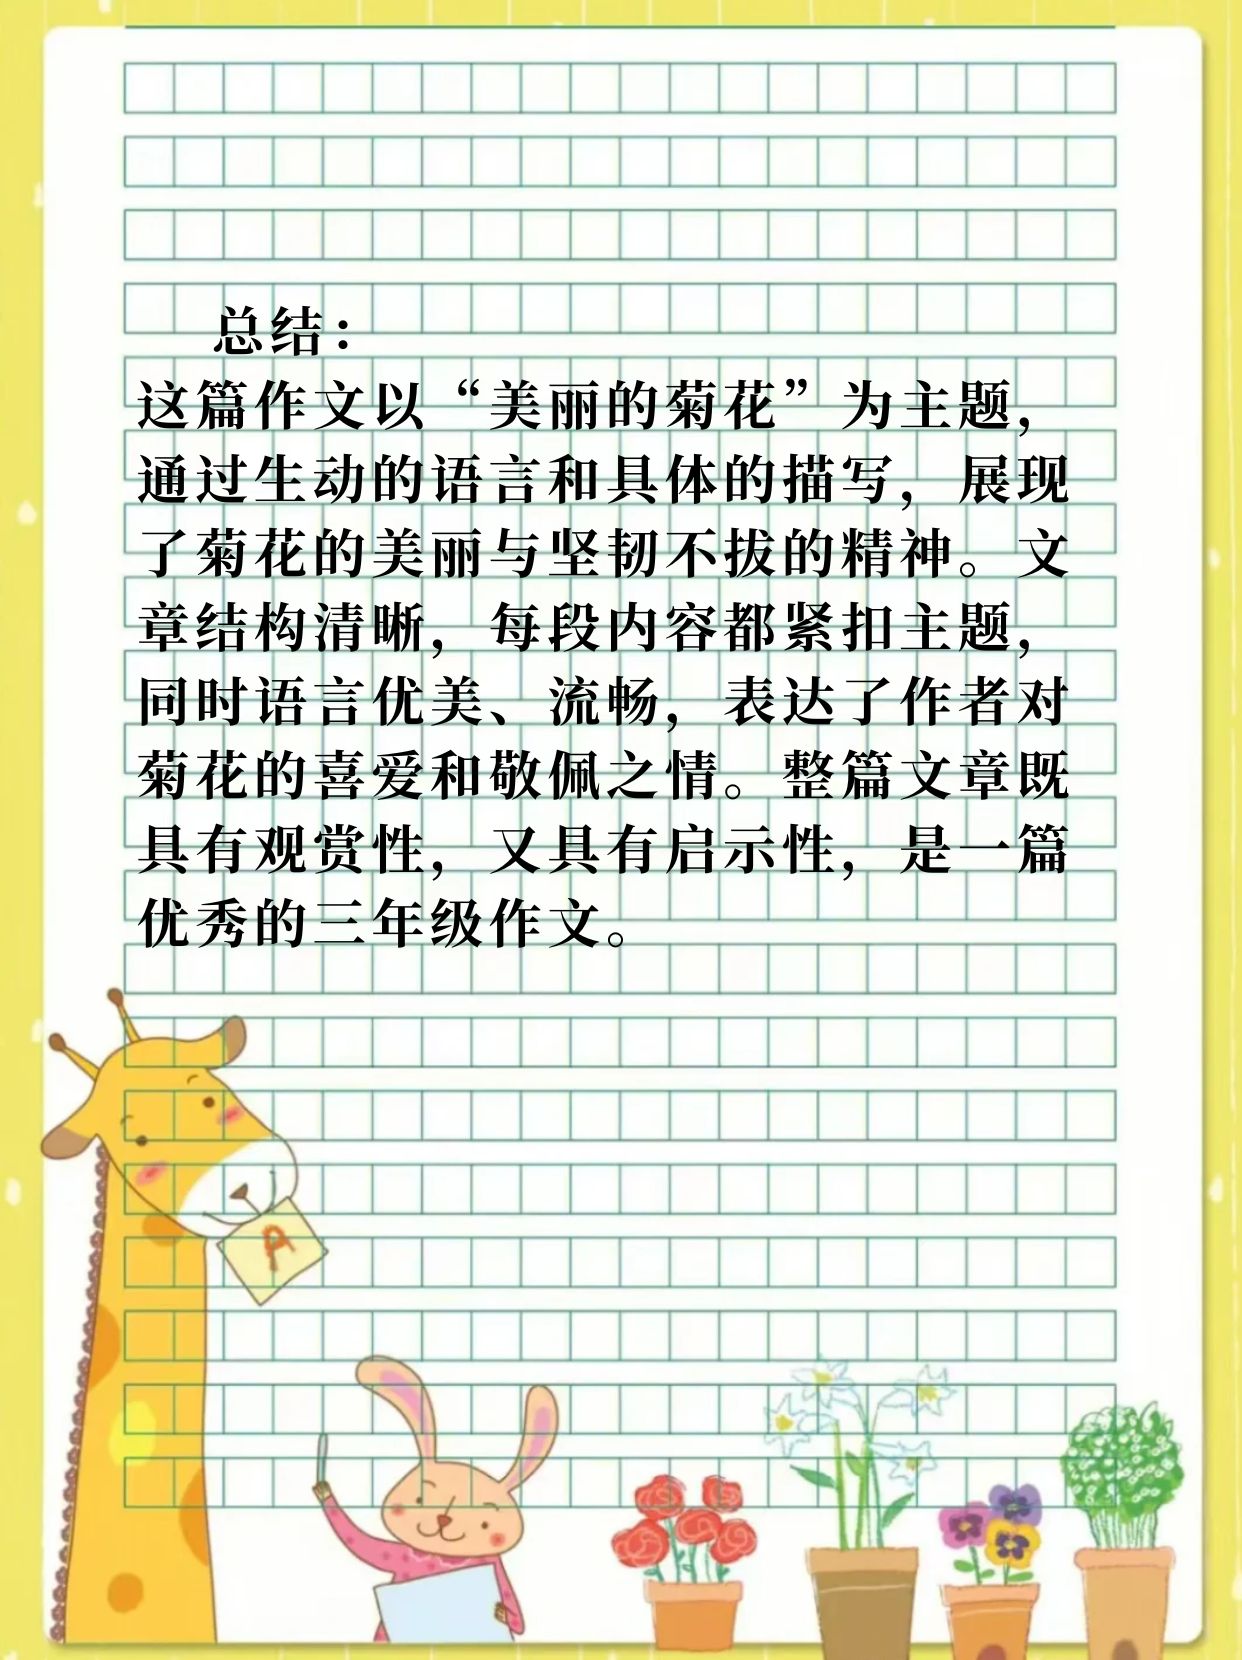 总结：
这篇作文以“美丽的菊花”为主题，
通过生动的语言和具体的描写，展现
了菊花的美丽与坚韧不拔的精神。文
章结构清晰，每段内容都紧扣主题，
同时语言优美、流畅，表达了作者对
菊花的喜爱和敬佩之情。整篇文章既
具有观赏性，又具有启示性，是一篇
优秀的三年级作文。
A